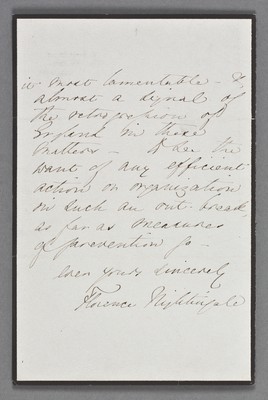 is most lamentable - &
almost a signal of
the retrogression of
England in these
matters - I see the
want of any efficient
action or organization
in such an out-break,
as far as measures
of prevention go -
ever yours sincerely
Florence Nightingale